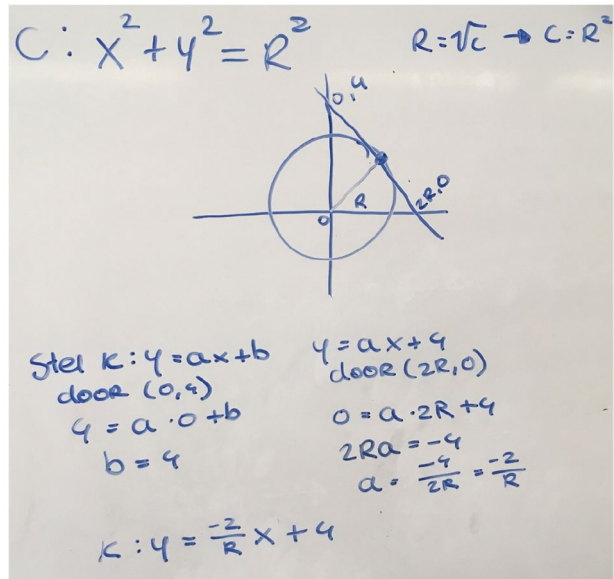 C: x² + y² = R²
R = √c → C = R²
0,4
R
0
2R,0
Stel k: y = ax + b
door (0,4)
4 = a · 0 + b
b = 4
y = ax + 4
door (2R,0)
0 = a · 2R + 4
2Ra = -4
a = -4/2R = -2/R
k: y = -2/R x + 4